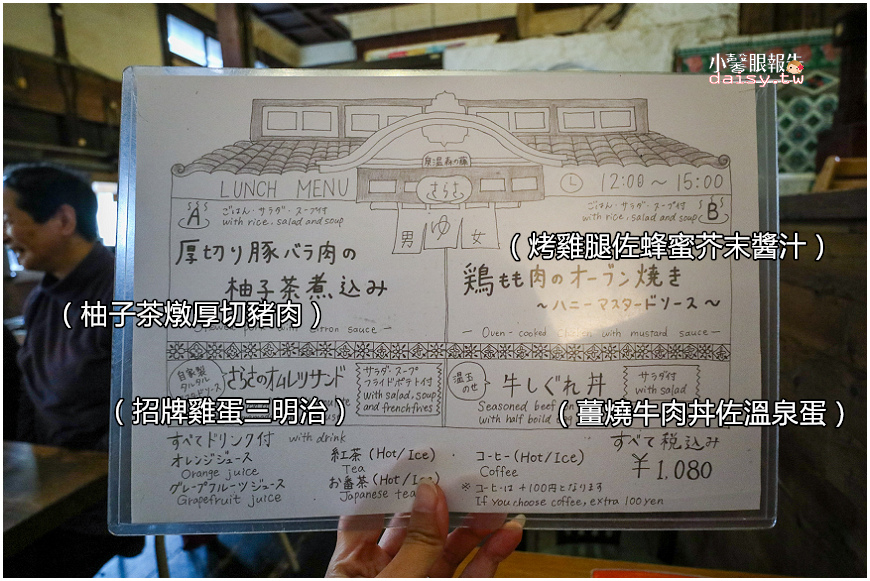 小馨眼報告
daisy.tw
さらさ
LUNCH MENU
12:00 ～ 15:00
男 ゆ 女
A
ごはん・サラダ・スープ付
with rice, salad and soup
厚切り豚バラ肉の
柚子茶煮込み
(柚子茶燉厚切豬肉)
ごはん・サラダ・スープ付
with rice, salad and soup
B
(烤雞腿佐蜂蜜芥末醬汁)
鶏もも肉のオーブン焼き
～ハニーマスタードソース～
Oven-cooked with mustard sauce
自家製
タルタル
ソース
さらさのオムレツサンド
サラダ・スープ
フライドポテト付
with salad, soup
and frenchfries
(招牌雞蛋三明治)
温玉
のせ
牛しぐれ丼
サラダ付
with salad
Seasoned beef
with half boild
(薑燒牛肉丼佐溫泉蛋)
すべてドリンク付 with drink
すべて税込み
¥1,080
オレンジジュース
Orange juice
グレープフルーツジュース
Grapefruit juice
紅茶 (Hot/Ice)
Tea
お番茶 (Hot/Ice)
Japanese tea
コーヒー (Hot/Ice)
Coffee
※コーヒーは+100円となります
If you choose coffee, extra 100 yen